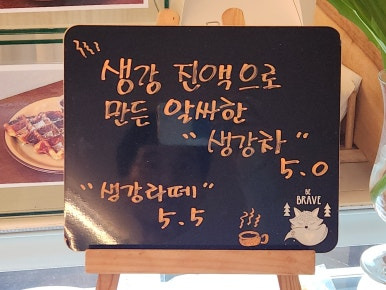 생강 진액으로
만든 알싸한
"생강차"
5.0
"생강라떼"
5.5
BE
BRAVE